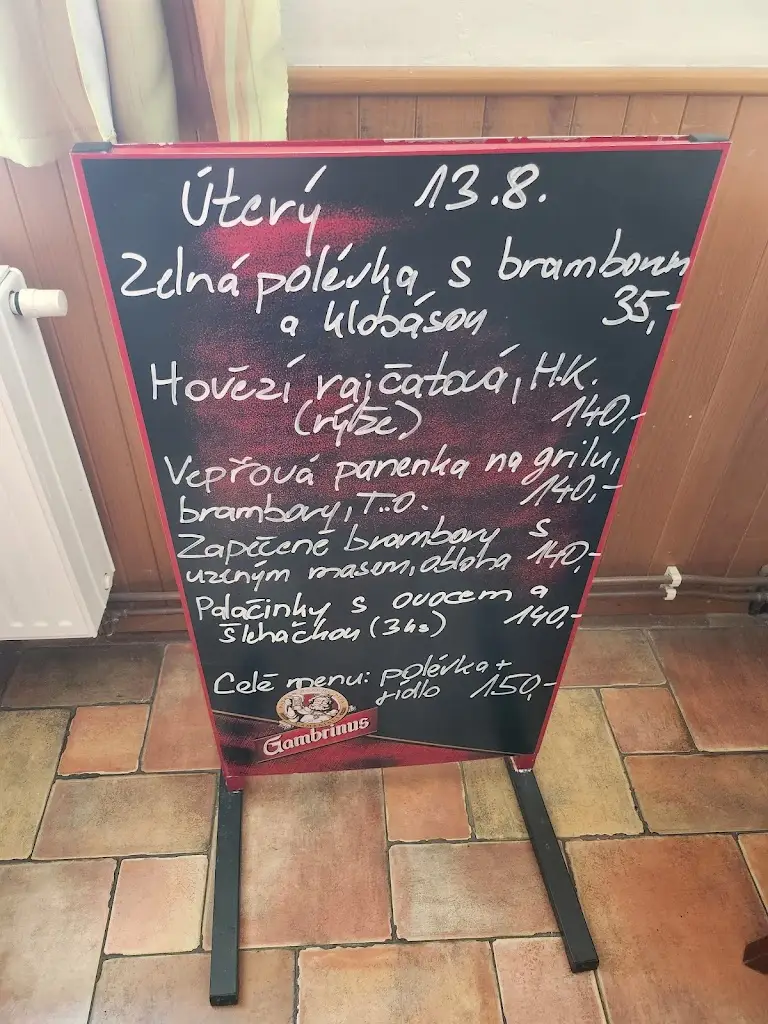 Úterý 13.8.
Zelná polévka s bramborem
a klobásou 35,-
Hovězí rajčatová, H.K.
(rýže) 140,-
Vepřová panenka na grilu,
brambory, T.O. 140,-
Zapečené brambory s
uzeným masem, obloha 140,-
Palačinky s ovocem a
šlehačkou (3ks) 140,-
Celé menu: polévka +
jídlo 150,-
Gambrinus